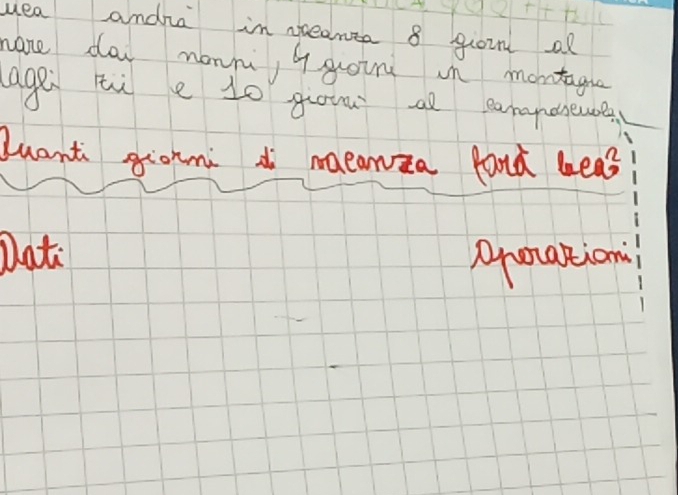 uea andrà in vacanza 8 giorni al
mare dai nonni, 4 giorni in montagna
dagli zii e 10 giorni al camposcuola.
Quanti giorni di vacanza farà Lea?
Dati Operazioni